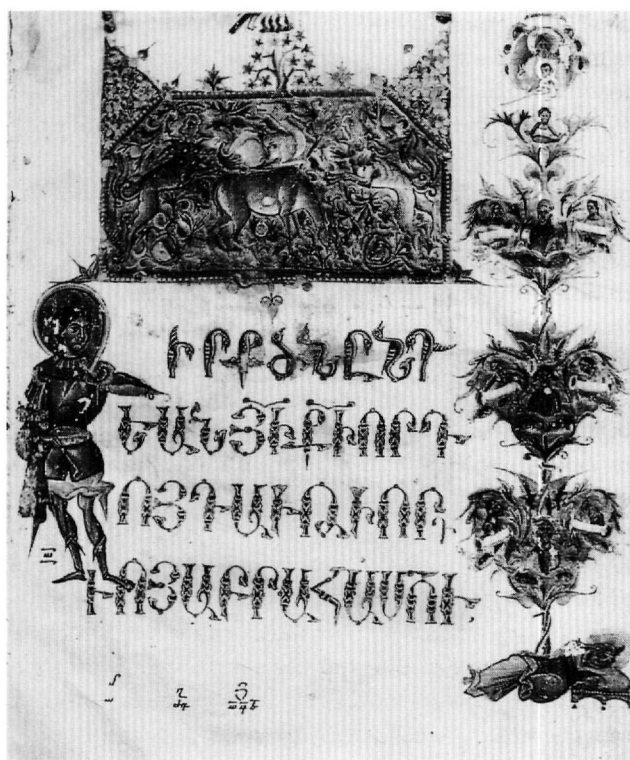 ԻՐՔԾՆԸՆԴ
ԵԱՆՅԻՔԻՈՐԴ
ՈՅԴԱՒԹԻՈՐԴ
ՒՈՅԱԲՐԱՀԱՄՈՒ